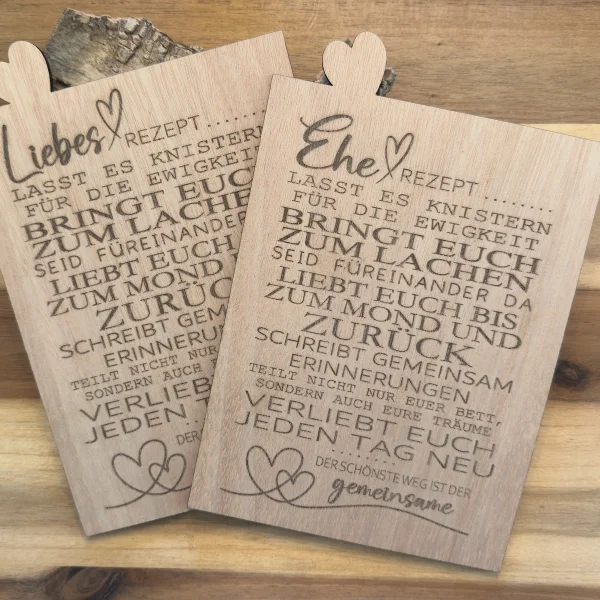 Liebes REZEPT ........
LASST ES KNISTERN
FÜR DIE EWIGKEIT
BRINGT EUCH
ZUM LACHEN
SEID FÜREINANDER
LIEBT EUCH
ZUM MOND
ZURÜ
SCHREIBT GEM
ERINNERUN
TEILT NICHT NUR
SONDERN AUCH
VERLIEBT
JEDEN
DER
Ehe REZEPT ........
LASST ES KNISTERN
FÜR DIE EWIGKEIT
BRINGT EUCH
ZUM LACHEN
SEID FÜREINANDER DA
LIEBT EUCH BIS
ZUM MOND UND
ZURÜCK
SCHREIBT GEMEINSAM
ERINNERUNGEN
TEILT NICHT NUR EUER BETT,
SONDERN AUCH EURE TRÄUME
VERLIEBT EUCH
JEDEN TAG NEU
........
DER SCHÖNSTE WEG IST DER
gemeinsame